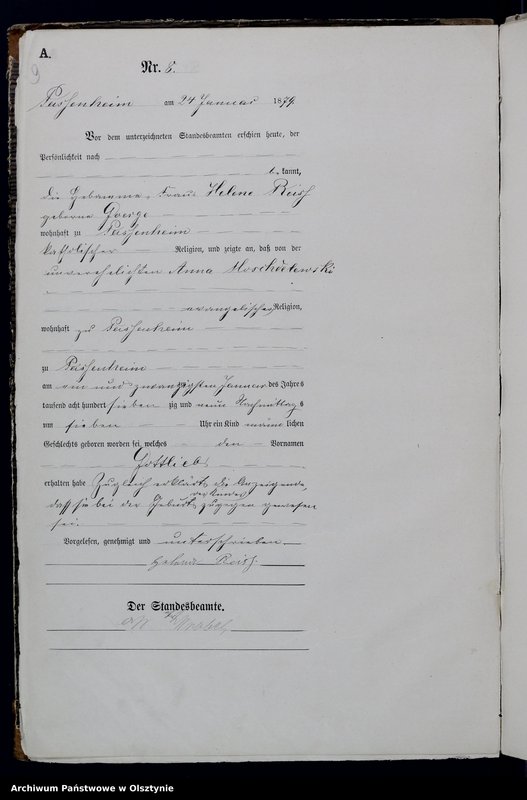 A.
9
Nr. 8.
Passenheim am 24 Januar 1879.
Vor dem unterzeichneten Standesbeamten erschien heute, der
Persönlichkeit nach
be kannt,
die Hebamme, Frau Helene Reiß
geborne George
wohnhaft zu Passenheim
katholischer Religion, und zeigte an, daß von der
unverehelichten Anna
evangelischer Religion,
wohnhaft zu Passenheim
zu Passenheim
am ein und zwanzigsten Januar des Jahres
tausend acht hundert sieben zig und neun Nachmittags
um sieben Uhr ein Kind männ lichen
Geschlechts geboren worden sei, welches den Vornamen
Gottlieb
erhalten habe Zugleich erklärte die Anzeigende,
daß sie bei der Geburt des Kindes zugegen gewesen
sei.
Vorgelesen, genehmigt und unterschrieben.
Helene Reiß.
Der Standesbeamte.
Archiwum Państwowe w Olsztynie